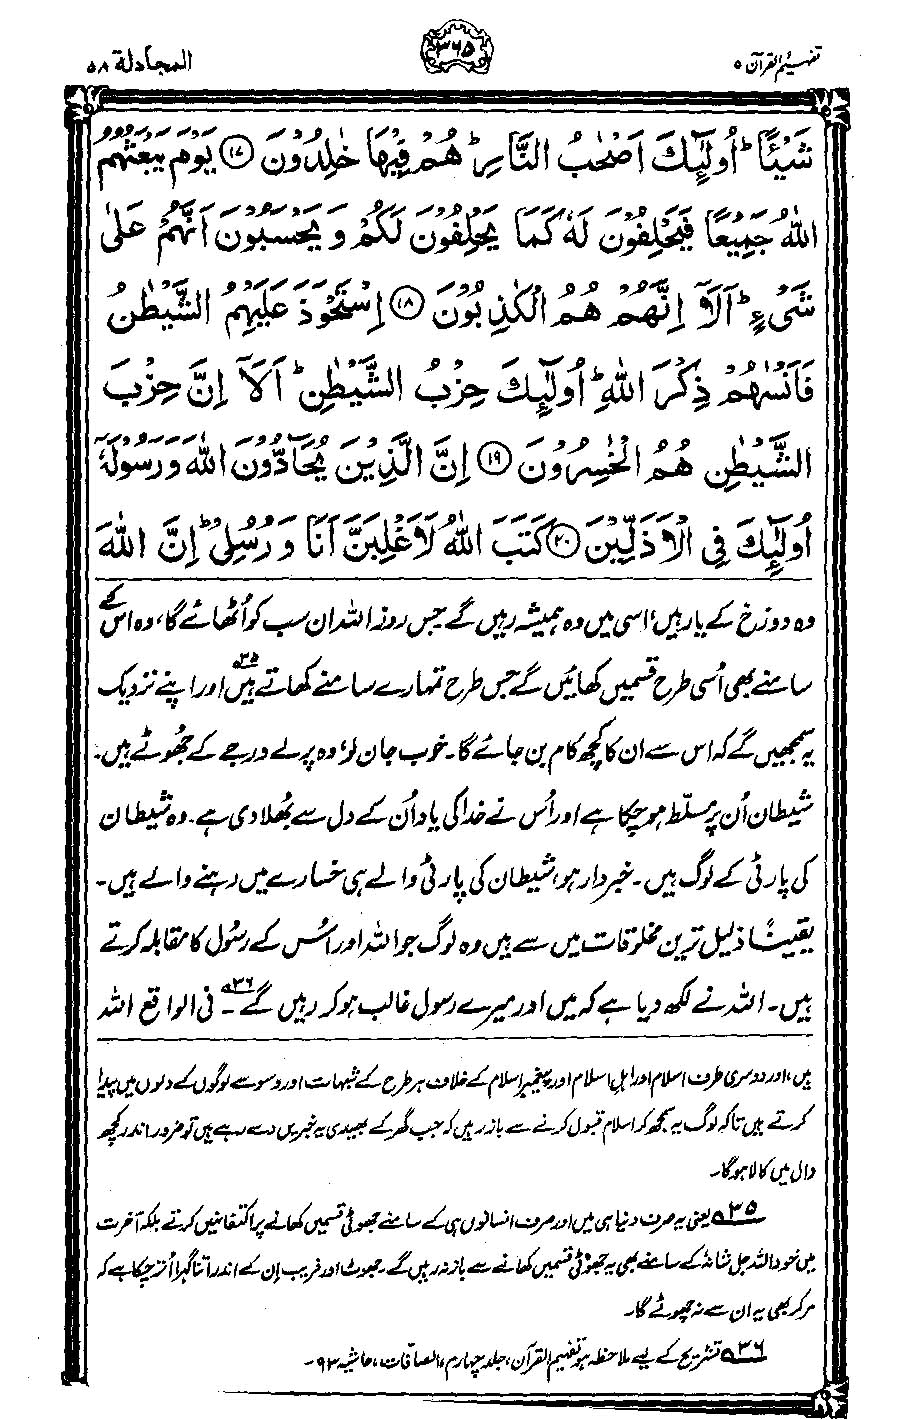 تفہیم القرآن ۵
۳۶۵
المجادلة ۵۸
شَیْـًٔا ؕ اُولٰٓئِكَ اَصْحٰبُ النَّارِ ؕ هُمْ فِیْهَا خٰلِدُوْنَ ۝۱۷ یَوْمَ یَبْعَثُهُمُ
اللّٰهُ جَمِیْعًا فَیَحْلِفُوْنَ لَهٗ كَمَا یَحْلِفُوْنَ لَكُمْ وَ یَحْسَبُوْنَ اَنَّهُمْ عَلٰی
شَیْءٍ ؕ اَلَاۤ اِنَّهُمْ هُمُ الْكٰذِبُوْنَ ۝۱۸ اِسْتَحْوَذَ عَلَیْهِمُ الشَّیْطٰنُ
فَاَنْسٰىهُمْ ذِكْرَ اللّٰهِ ؕ اُولٰٓئِكَ حِزْبُ الشَّیْطٰنِ ؕ اَلَاۤ اِنَّ حِزْبَ
الشَّیْطٰنِ هُمُ الْخٰسِرُوْنَ ۝۱۹ اِنَّ الَّذِیْنَ یُحَآدُّوْنَ اللّٰهَ وَ رَسُوْلَهٗۤ
اُولٰٓئِكَ فِی الْاَذَلِّیْنَ ۝۲۰ كَتَبَ اللّٰهُ لَاَغْلِبَنَّ اَنَا وَ رُسُلِیْ ؕ اِنَّ اللّٰهَ
وہ دوزخ کے یار ہیں، اسی میں وہ ہمیشہ رہیں گے جس روز اللہ ان سب کو اُٹھائے گا، وہ اس کے
سامنے بھی اُسی طرح قسمیں کھائیں گے جس طرح تمہارے سامنے کھاتے ہیں۳۵ اور اپنے نزدیک
یہ سمجھیں گے کہ اس سے ان کا کچھ کام بن جائے گا۔ خوب جان لو، وہ پرلے درجے کے جھُوٹے ہیں۔
شیطان اُن پر مسلّط ہو چکا ہے اور اُس نے خدا کی یاد اُن کے دل سے بھُلا دی ہے۔ وہ شیطان
کی پارٹی کے لوگ ہیں۔ خبردار ہو، شیطان کی پارٹی والے ہی خسارے میں رہنے والے ہیں۔
یقینًا ذلیل ترین مخلوقات میں سے ہیں وہ لوگ جو اللہ اور اُس کے رسُول کا مقابلہ کرتے
ہیں۔ اللہ نے لکھ دیا ہے کہ میں اور میرے رسول غالب ہو کر رہیں گے۳۶۔ فی الواقع اللہ
ہیں، اور دوسری طرف اسلام اور اہلِ اسلام اور پیغمبرِ اسلام کے خلاف ہر طرح کے شبہات اور وسوسے لوگوں کے دلوں میں پیدا
کرتے ہیں تاکہ لوگ یہ سمجھ کر اسلام قبول کرنے سے باز رہیں کہ جب گھر کے بھیدی یہ خبریں دے رہے ہیں تو ضرور اندر کچھ
دال میں کالا ہوگا۔
۳۵ یعنی یہ صرف دنیا ہی میں اور صرف انسانوں ہی کے سامنے جھوٹی قسمیں کھانے پر اکتفا نہیں کرتے بلکہ آخرت
میں خود اللہ جل شانہٗ کے سامنے بھی یہ جھوٹی قسمیں کھانے سے باز نہ رہیں گے۔ جھوٹ اور فریب اِن کے اندر اتنا گہرا اُتر چکا ہے کہ
مر کر بھی یہ ان سے نہ چھوٹے گا۔
۳۶ تشریح کے لیے ملاحظہ ہو تفہیم القرآن، جلد چہارم، الصافات، حاشیہ ۹۳۔